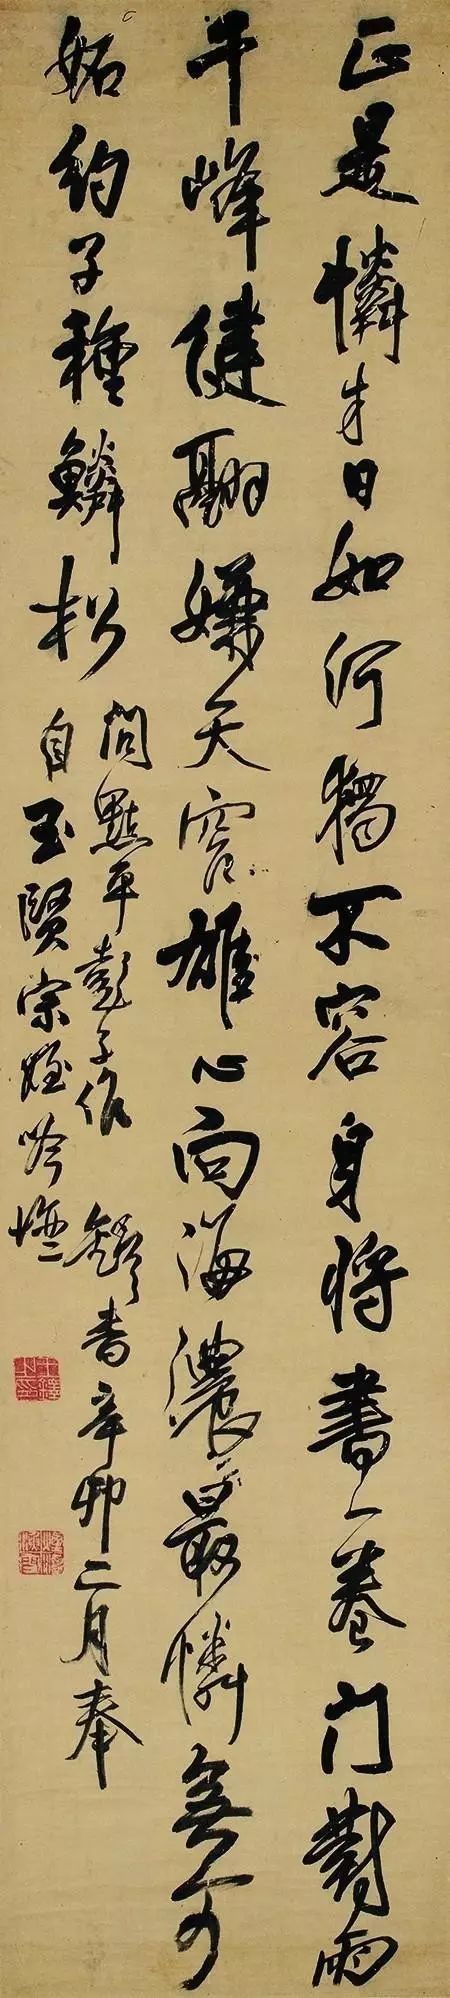 正是憐才日如何獨不容身將書一卷門對雨
千峰健翮嫌天窄雄心向海濃最憐無可
妬約子種鱗松
問點平彭子作 鐸書辛卯二月奉
自玉賢宗姪吟壇
王鐸之印